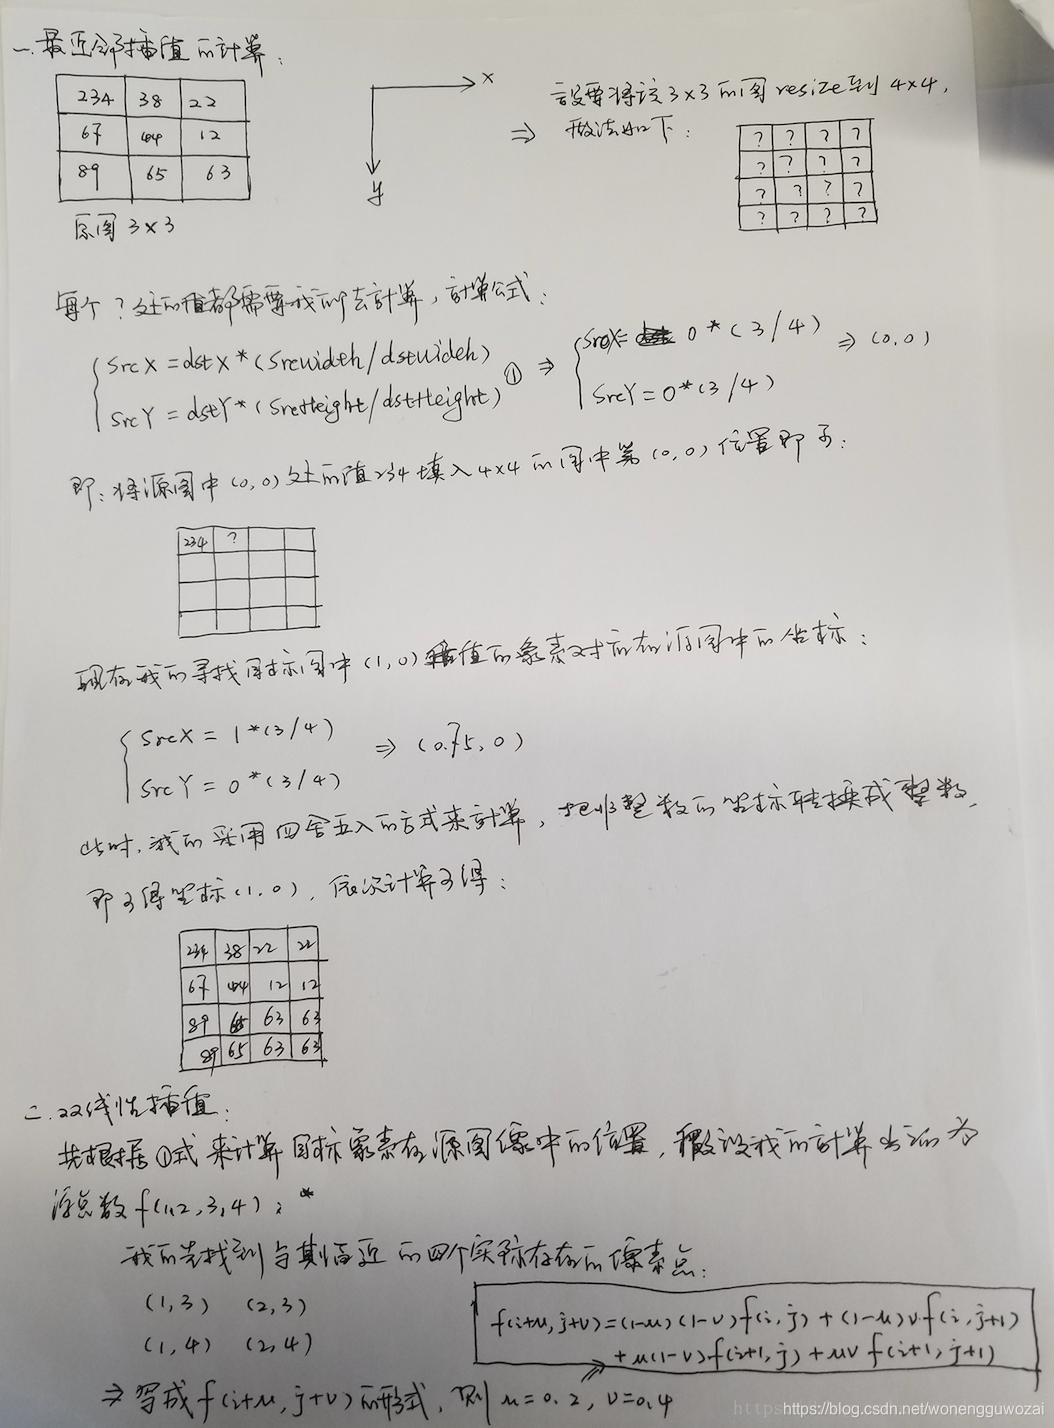 一.最近邻插值的计算:
234 38 22
67 44 12
89 65 63
原图 3×3
x
y
⇒
设要将该3×3的图resize到4×4,
做法如下:
? ? ? ?
? ? ? ?
? ? ? ?
? ? ? ?
每个?处的值都需要我们去计算,计算公式:
SrcX=dstX*(Srcwidth/dstwideh)
SrcY=dstY*(SrcHeight/dstHeight) ①
⇒ SrcX= 0*(3/4)
SrcY=0*(3/4)
⇒ (0,0)
即:将源图中(0,0)处的值234填入4×4的图中第(0,0)位置即可:
234 ?
现在我们寻找目标图中(1,0)值的象素对应在源图中的坐标:
SrcX = 1*(3/4)
SrcY = 0*(3/4)
⇒ (0.75,0)
此时,我们采用四舍五入的方式来计算,把非整数的坐标转换成整数,
即可得坐标(1,0),依次计算可得:
234 38 22 22
67 44 12 12
89 65 63 63
89 65 63 63
二.双线性插值:
先根据①式来计算目标象素在源图像中的位置,假设我们计算出的为
浮点数f(1.2,3.4),
我们先找到与其临近的四个实际存在的像素点:
(1,3) (2,3)
(1,4) (2,4)
f(i+u,j+v)=(1-u)(1-v)f(i,j)+(1-u)v.f(i,j+1)
+u(1-v)f(i+1,j)+uv f(i+1,j+1)
⇒ 写成f(i+u,j+v)的形式,则u=0.2,v=0.4
https://blog.csdn.net/wonengguwozai